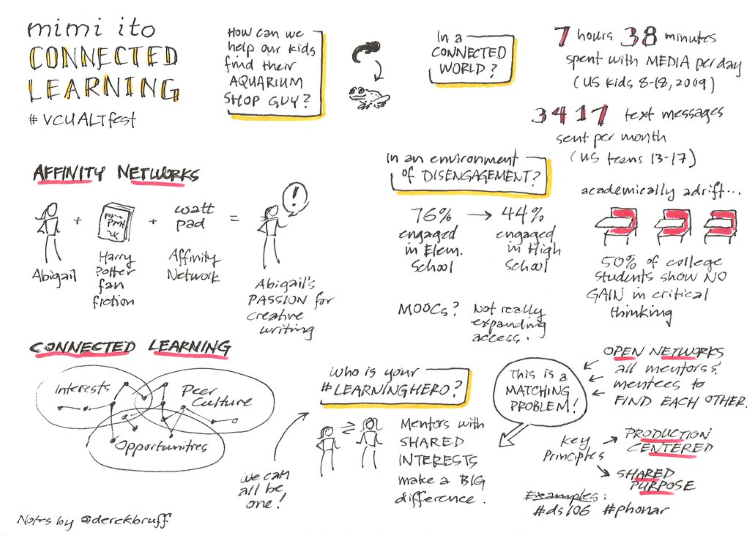 mimi ito
CONNECTED
LEARNING
#VCUALTfest
How can we
help our kids
find their
AQUARIUM
SHOP GUY?
In a
CONNECTED
WORLD?
7 hours 38 minutes
spent with MEDIA per day
(US kids 8-18, 2009)
3417 text messages
sent per month
(US teens 13-17)
In an environment
of DISENGAGEMENT?
76% → 44%
engaged
in Elem.
School
engaged
in High
School
MOOCs?
Not really
expanding
access.
academically adrift...
50% of college
students show NO
GAIN in critical
thinking
AFFINITY NETWORKS
Abigail
+
Harry
Potter
fan
fiction
+
watt
pad
Affinity
Network
=
!
Abigail's
PASSION for
creative
writing
CONNECTED LEARNING
Interests
Peer
Culture
Opportunities
we can
all be
one!
Who is your
#LEARNINGHERO?
Mentors with
SHARED
INTERESTS
make a BIG
difference.
This is a
MATCHING
PROBLEM!
OPEN NETWORKS
all mentors &
mentees to
FIND EACH OTHER.
Key
Principles
PRODUCTION
CENTERED
SHARED
PURPOSE
Examples:
#ds106 #phonar
Notes by @derekbruff